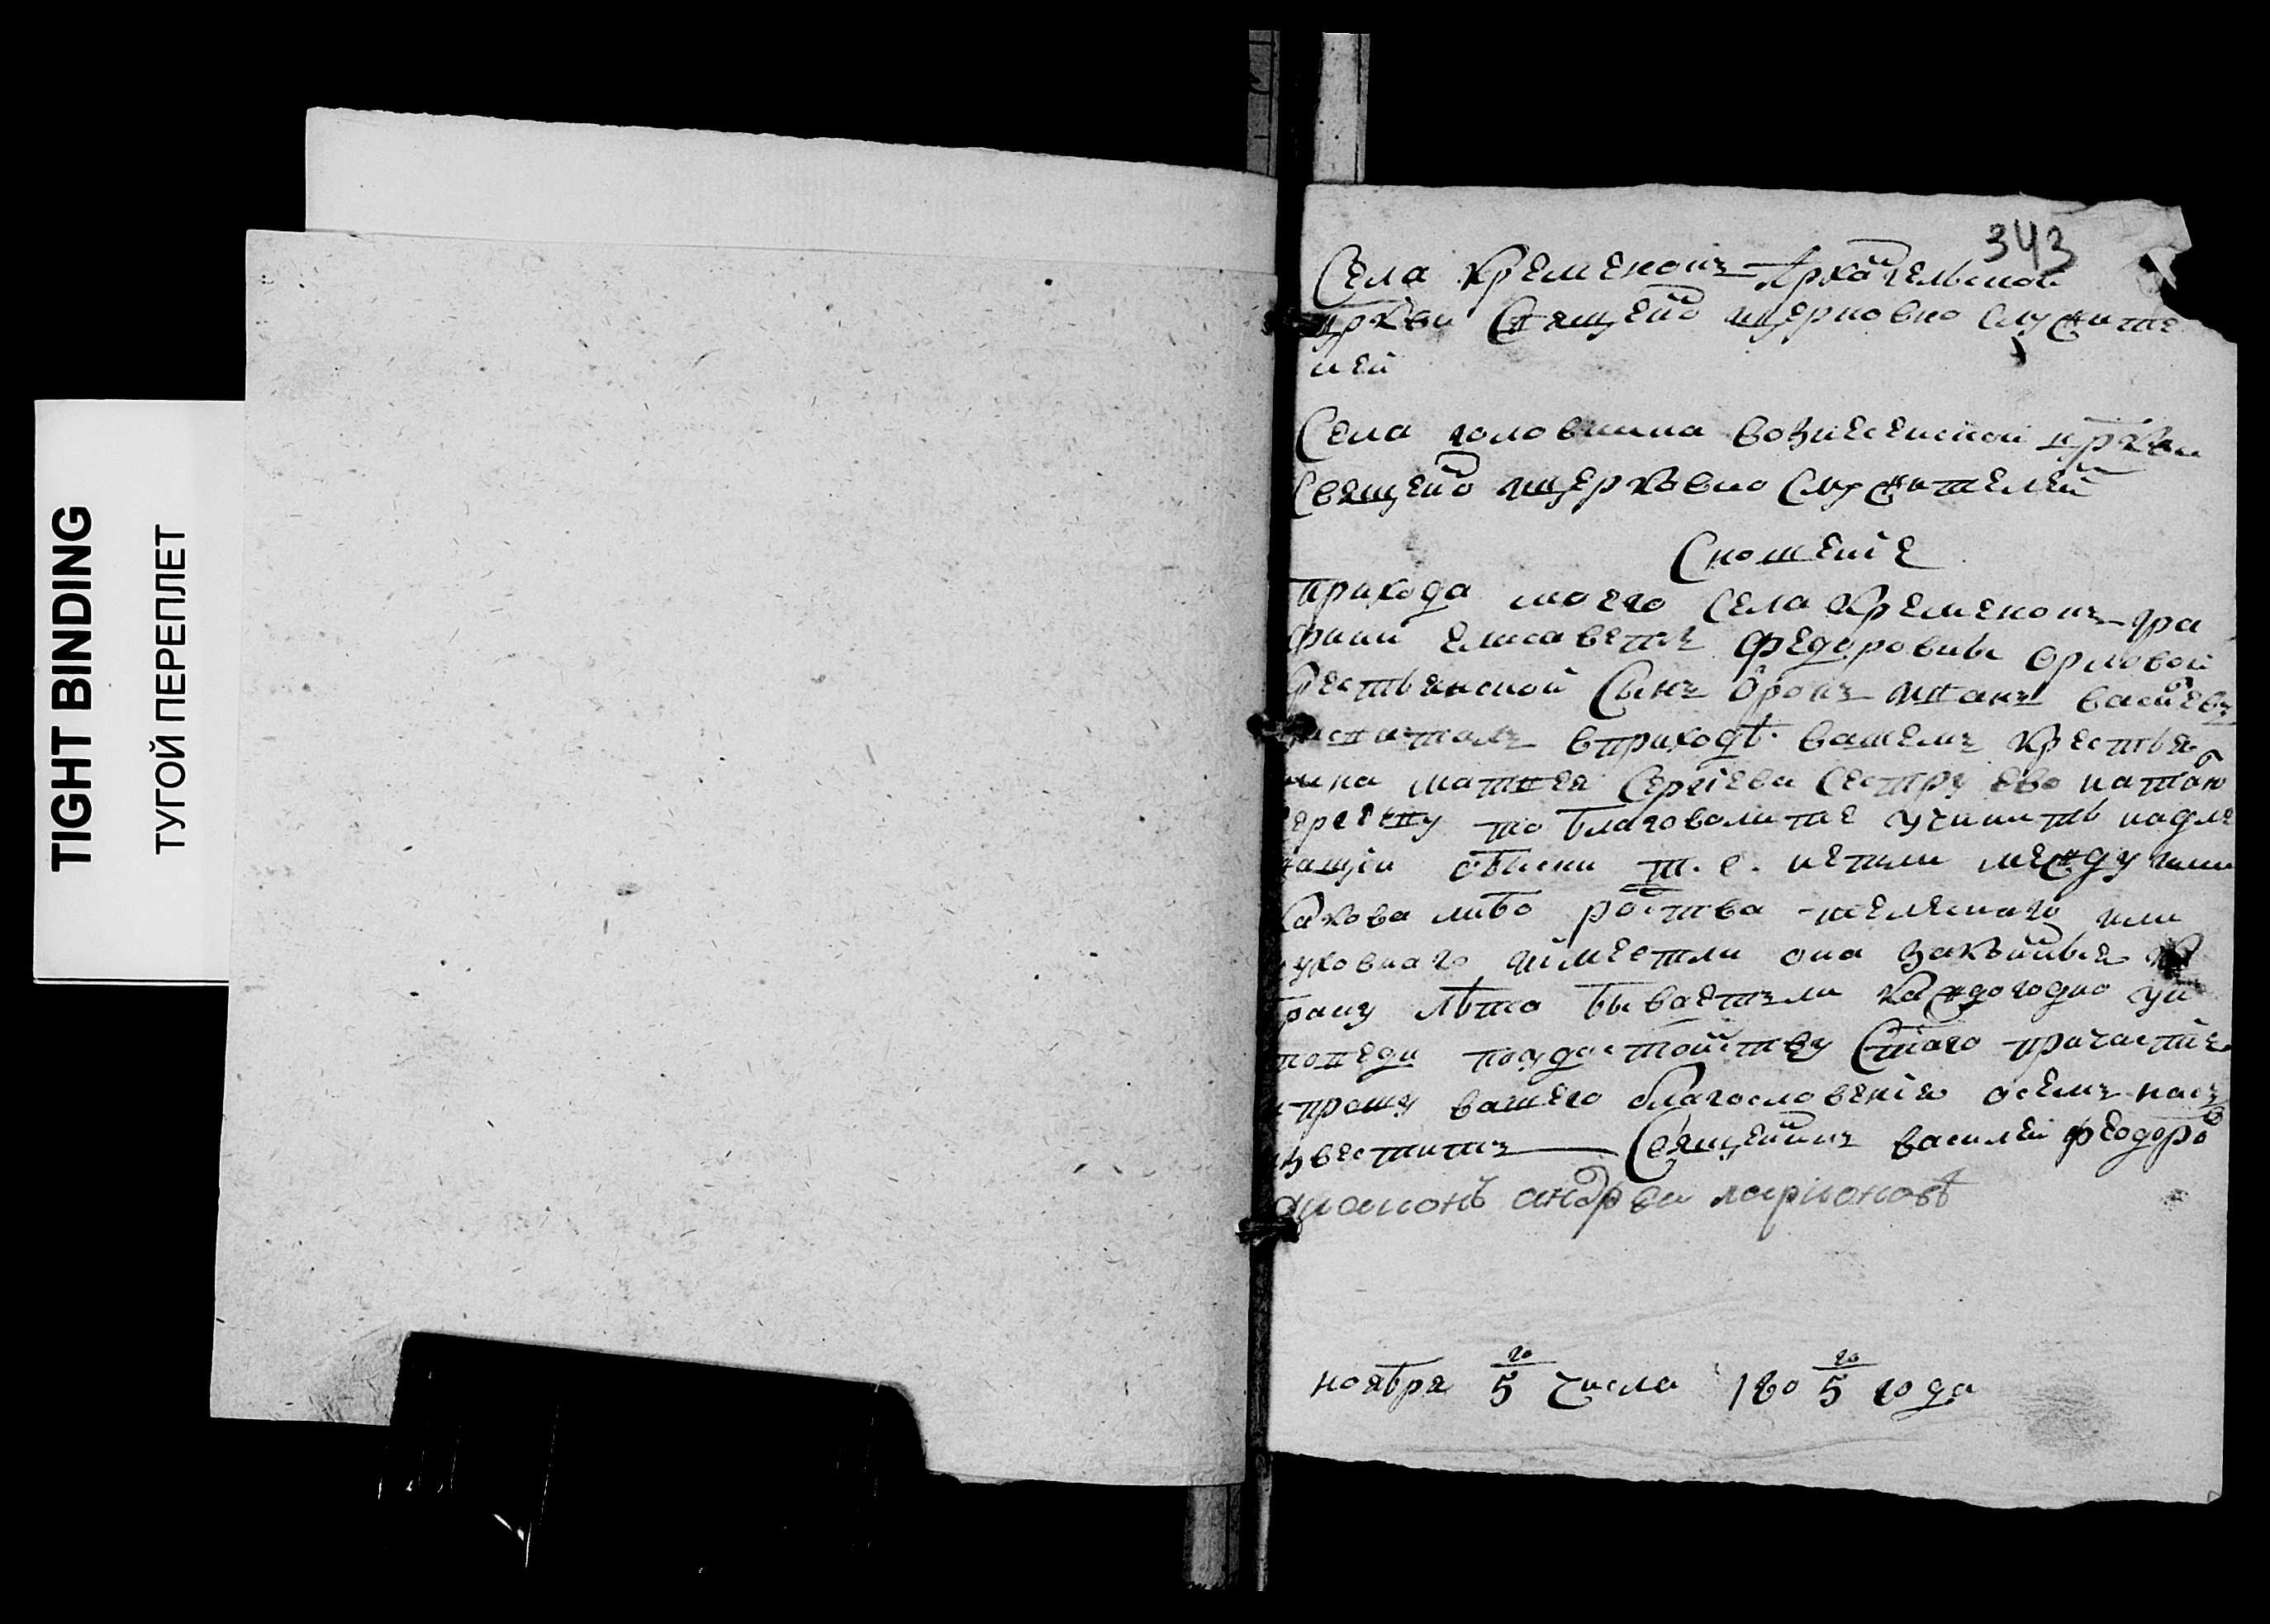 TIGHT BINDING
ТУГОЙ ПЕРЕПЛЕТ
343
Села Кременокъ Архагельской
цркви Священо ицерковно служите
лей
Села головина вознесенской цркви
Священо ицерковно служителей
Сношение
прихода моего Села Кременокъ гра
фини елисаветы Федоровны Орловой
крестьянской Сынъ иванъ
вприходѣ вашемъ крестья
нина матвея Сергіева Сестру ево
то благоволите учинить надле
жащіи обыски т. е. нетли между ими
какова либо роства телеснаго или
духовнаго иместли она
лѣта бываетъли каждогодно уи
споведи Стаго причастіе
и прошу вашего благословенія осемъ насъ
известитъ Священикъ василей феодоро
диаконъ андреи ларионовъ
ноября 5 го числа 1805 го года